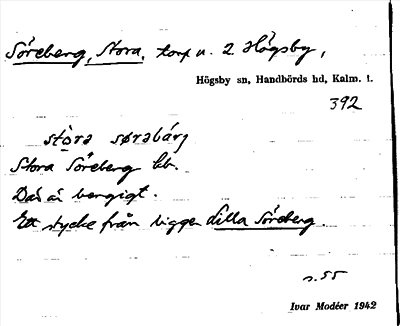 Söreberg, Stora, torp u. 2 Högsby,
Högsby sn, Handbörds hd, Kalm. l.
392
stora sørabärj
Stora Söreberg bb.
Där är bergigt.
Ett stycke från ligger Lilla Söreberg.
s. 55
Ivar Modéer 1942